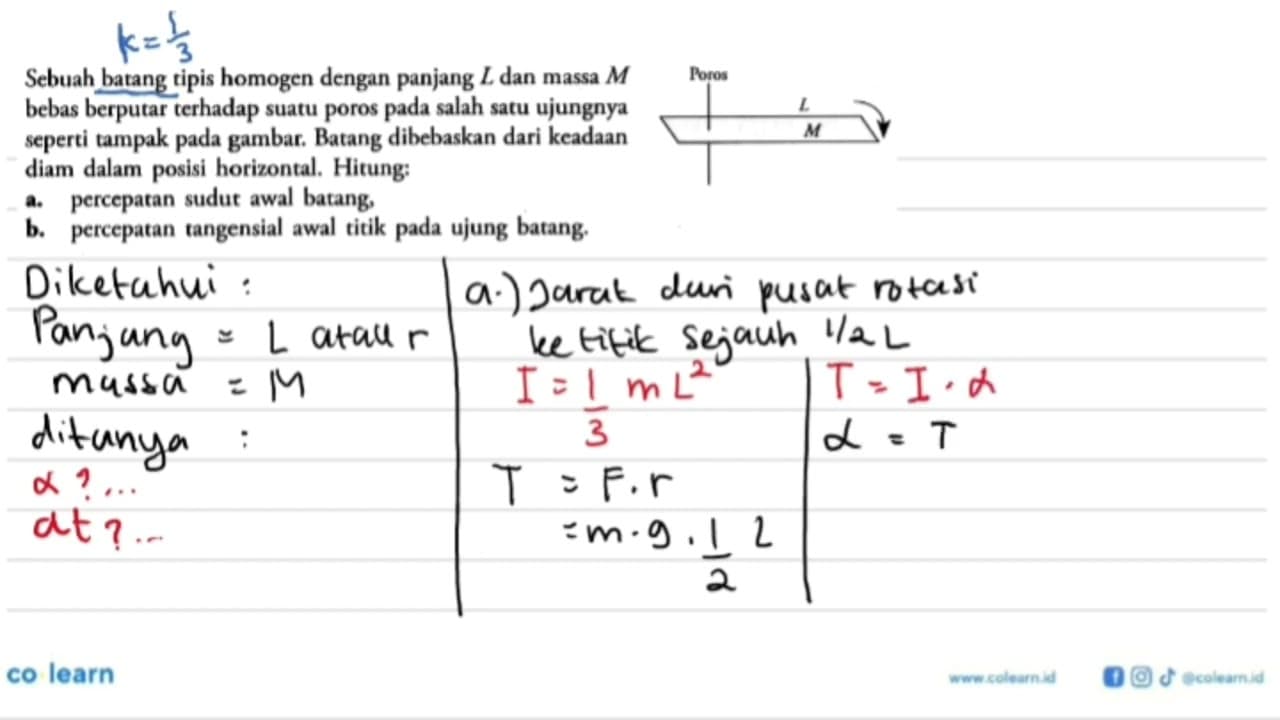 k = 1/3
Sebuah batang tipis homogen dengan panjang L dan massa M
bebas berputar terhadap suatu poros pada salah satu ujungnya
seperti tampak pada gambar. Batang dibebaskan dari keadaan
diam dalam posisi horizontal. Hitung:
a. percepatan sudut awal batang,
b. percepatan tangensial awal titik pada ujung batang.
Poros
L
M
Diketahui :
Panjang = L atau r
massa = M
ditanya :
α ? ...
at ? ...
a.) Jarak dari pusat rotasi
ke titik sejauh 1/2 L
I = 1/3 m L²
T = F. r
= m . g . 1/2 L
T = I . α
α = T
co learn
www.colearn.id
@colearn.id